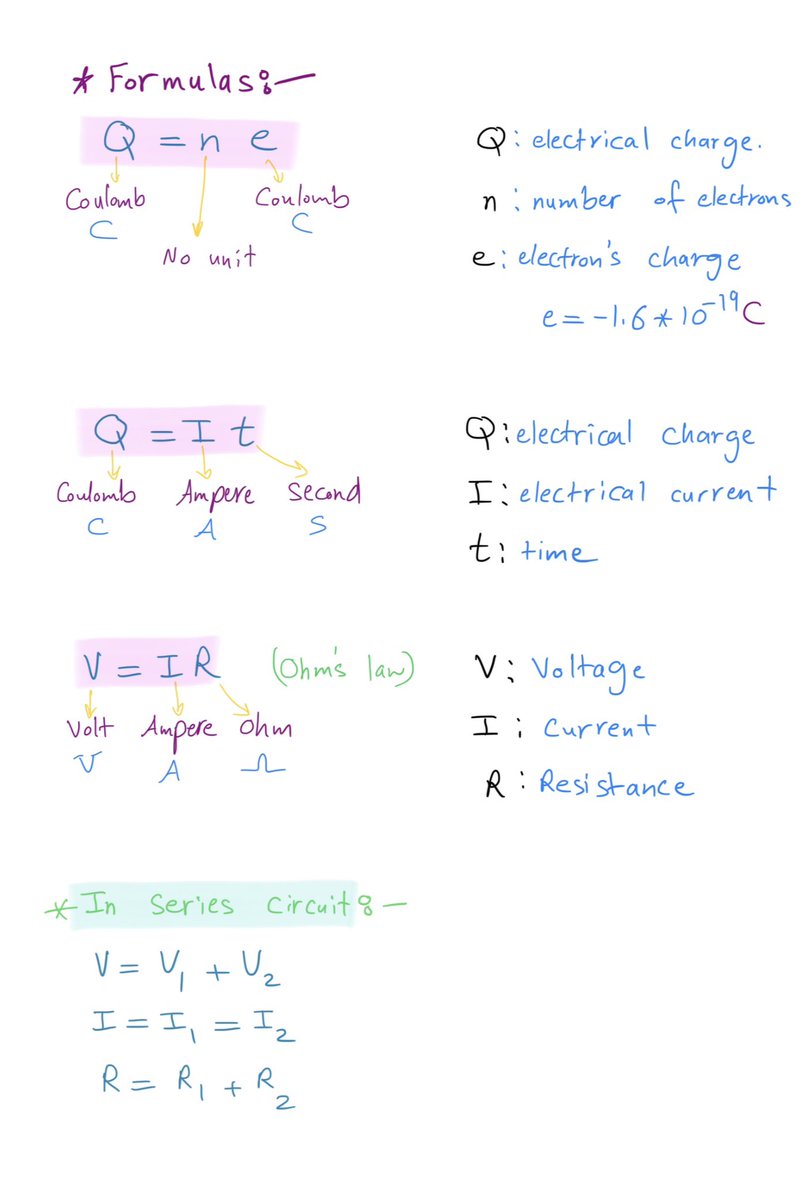 * Formulas:-
Q = n e
Coulomb
C
No unit
Coulomb
C
Q: electrical charge.
n: number of electrons
e: electron's charge
e = -1.6 * 10^-19 C
Q = I t
Coulomb Ampere Second
C A S
Q: electrical charge
I: electrical current
t: time
V = I R (Ohm's law)
Volt Ampere Ohm
V A Ω
V: Voltage
I: Current
R: Resistance
* In Series Circuit:-
V = V₁ + V₂
I = I₁ = I₂
R = R₁ + R₂